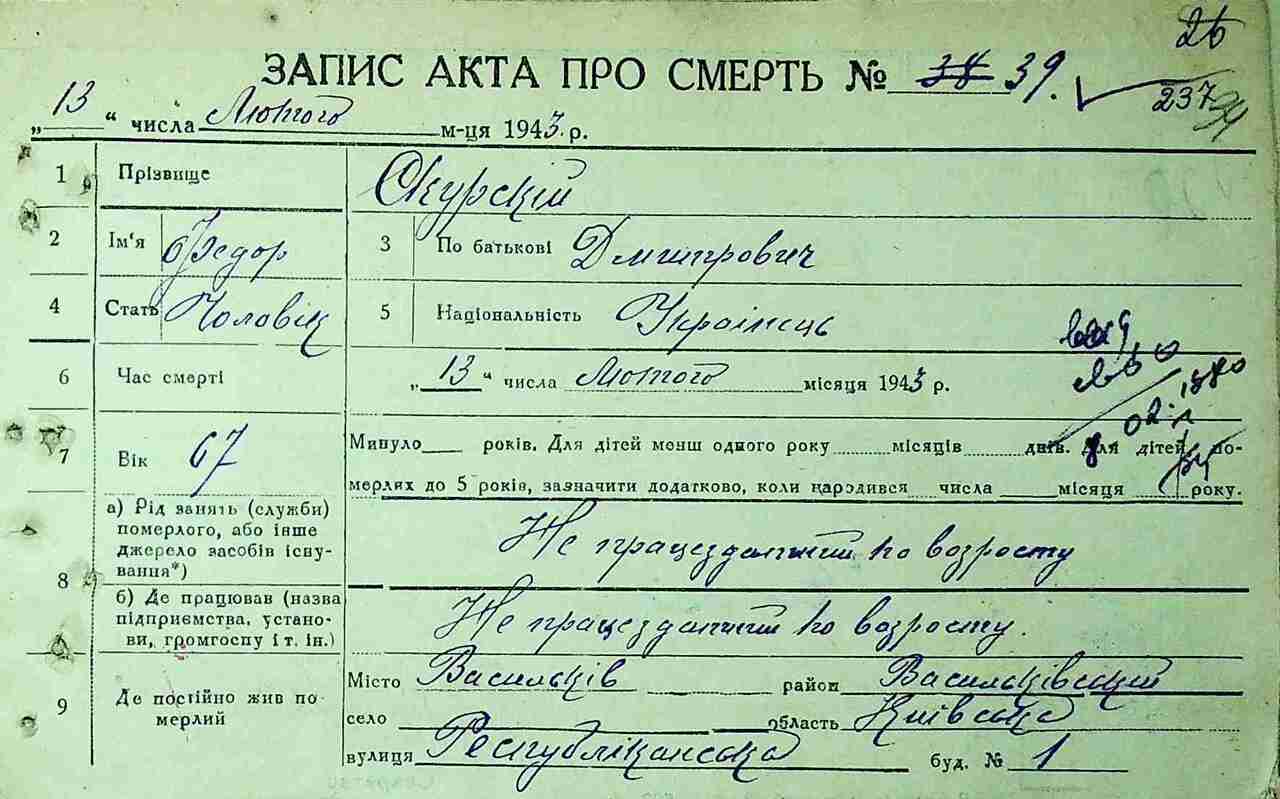 26
ЗАПИС АКТА ПРО СМЕРТЬ № 38 39.
237
„13“ числа Лютого м-ця 1943 р.
1 Прізвище Скурскій
2 Ім'я Федор 3 По батькові Дмитрович
4 Стать Чоловік 5 Національність Українець
6 Час смерті „13“ числа Лютого місяця 1943 р.
02. 1880
7 Вік 67 Минуло років. Для дітей менш одного року місяців днів. Для дітей, по-
мерлих до 5 років, зазначити додатково, коли народився числа місяця року.
8 а) Рід занять (служби) померлого, або інше джерело засобів існу-вання*) Не працездатний по возросту
б) Де працював (назва підприємства, устано-ви, громгоспу і т. ін.) Не працездатний по возросту.
9 Де постійно жив по-мерлий Місто Васильків район Васильківський
село область Київська
вулиця Республіканська буд. № 1